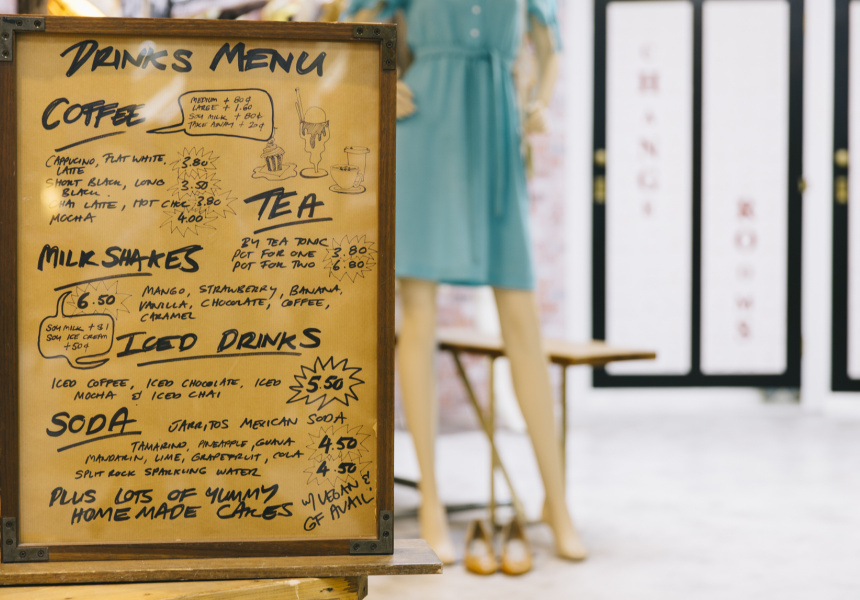 DRINKS MENU
COFFEE
MEDIUM + 80¢
LARGE + 1.60
SOY MILK + 80¢
TAKE AWAY + 20¢
CAPPUCINO, FLAT WHITE, 3.80
LATTE
SHORT BLACK, LONG 3.50
BLACK
CHAI LATTE, HOT CHOC 3.80
MOCHA 4.00
TEA
BY TEA TONIC
POT FOR ONE 3.80
POT FOR TWO 6.80
MILKSHAKES
6.50 MANGO, STRAWBERRY, BANANA,
VANILLA, CHOCOLATE, COFFEE,
CARAMEL
SOY MILK + $1
SOY ICE CREAM
+50¢
ICED DRINKS
ICED COFFEE, ICED CHOCOLATE, ICED 5.50
MOCHA & ICED CHAI
SODA JARRITOS MEXICAN SODA
TAMARIND, PINEAPPLE, GUAVA 4.50
MANDARIN, LIME, GRAPEFRUIT, COLA
SPLIT ROCK SPARKLING WATER 4.50
PLUS LOTS OF YUMMY
HOMEMADE CAKES
W/ VEGAN &
GF AVAIL.
CHANGE
ROOMS